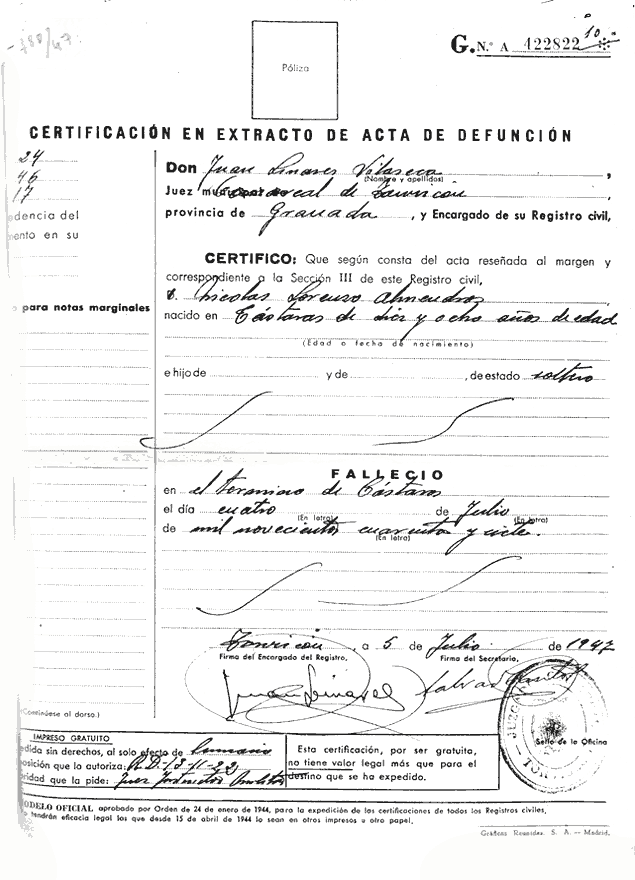 788/47
Póliza
G. N.º A 122822 10
CERTIFICACIÓN EN EXTRACTO DE ACTA DE DEFUNCIÓN
24
46
17
edencia del
mento en su
o para notas marginales
Don Juan Linares Vilaseca,
(Nombre y apellidos)
Juez municipal Comarcal de Torvizcón
provincia de Granada, y Encargado de su Registro civil,
CERTIFICO: Que según consta del acta reseñada al margen y
correspondiente a la Sección III de este Registro civil,
D. Nicolas Lorenzo Almendros
nacido en Cástaras de diez y ocho años de edad
(Edad o fecha de nacimiento)
e hijo de y de , de estado soltero
FALLECIO
en el termino de Cástaras
el día cuatro de Julio
(En letra) (En letra)
de mil novecientos cuarenta y siete.
(En letra)
Torvizcón, a 5 de Julio de 1947
Firma del Encargado del Registro, Firma del Secretario,
Juan Linares
Salvador
(Continúese al dorso.)
JUZGA
Sello de la Oficina
TOR
IMPRESO GRATUITO
edida sin derechos, al solo efecto de Sumario
posición que lo autoriza: R.D.-13-11-22
ridad que la pide: Juez Instructor Militar
Esta certificación, por ser gratuita,
no tiene valor legal más que para el
destino que se ha expedido.
ODELO OFICIAL aprobado por Orden de 24 de enero de 1944, para la expedición de las certificaciones de todos los Registros civiles.
o tendrán eficacia legal las que desde 15 de abril de 1944 lo sean en otros impresos u otro papel.
Gráficas Reunidas, S. A. — Madrid.